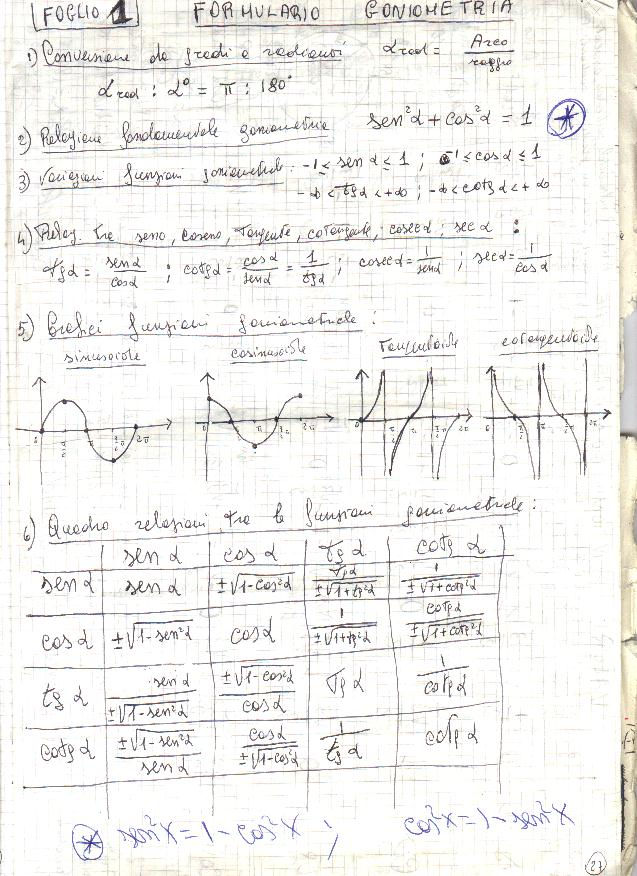 FOGLIO 1 FORMULARIO GONIOMETRIA
1) Conversione da gradi a radianti α rad = Arco / raggio
α rad : α° = π : 180°
2) Relazione fondamentale goniometria sen²α + cos²α = 1 *
3) Variazioni funzioni goniometriche: -1 ≤ sen α ≤ 1 ; -1 ≤ cos α ≤ 1
-∞ < tg α < +∞ ; -∞ < cotg α < +∞
4) Relaz. tra seno, coseno, tangente, cotangente, cosec α ; sec α :
tg α = sen α / cos α ; cotg α = cos α / sen α = 1 / tg α ; cosec α = 1 / sen α ; sec α = 1 / cos α
5) Grafici funzioni goniometriche :
sinusoide cosinusoide Tangentoide cotangentoide
0 π/2 π 3/2 π 2π 0 π/2 π 3/2 π 2π
6) Quadro relazioni tra le funzioni goniometriche :
sen α cos α tg α cotg α
sen α sen α ±√1-cos²α tg α / ±√1+tg²α 1 / ±√1+cotg²α
cos α ±√1-sen²α cos α 1 / ±√1+tg²α cotg α / ±√1+cotg²α
tg α sen α / ±√1-sen²α ±√1-cos²α / cos α tg α 1 / cotg α
cotg α ±√1-sen²α / sen α cos α / ±√1-cos²α 1 / tg α cotg α
* sen²x = 1 - cos²x ; cos²x = 1 - sen²x
27